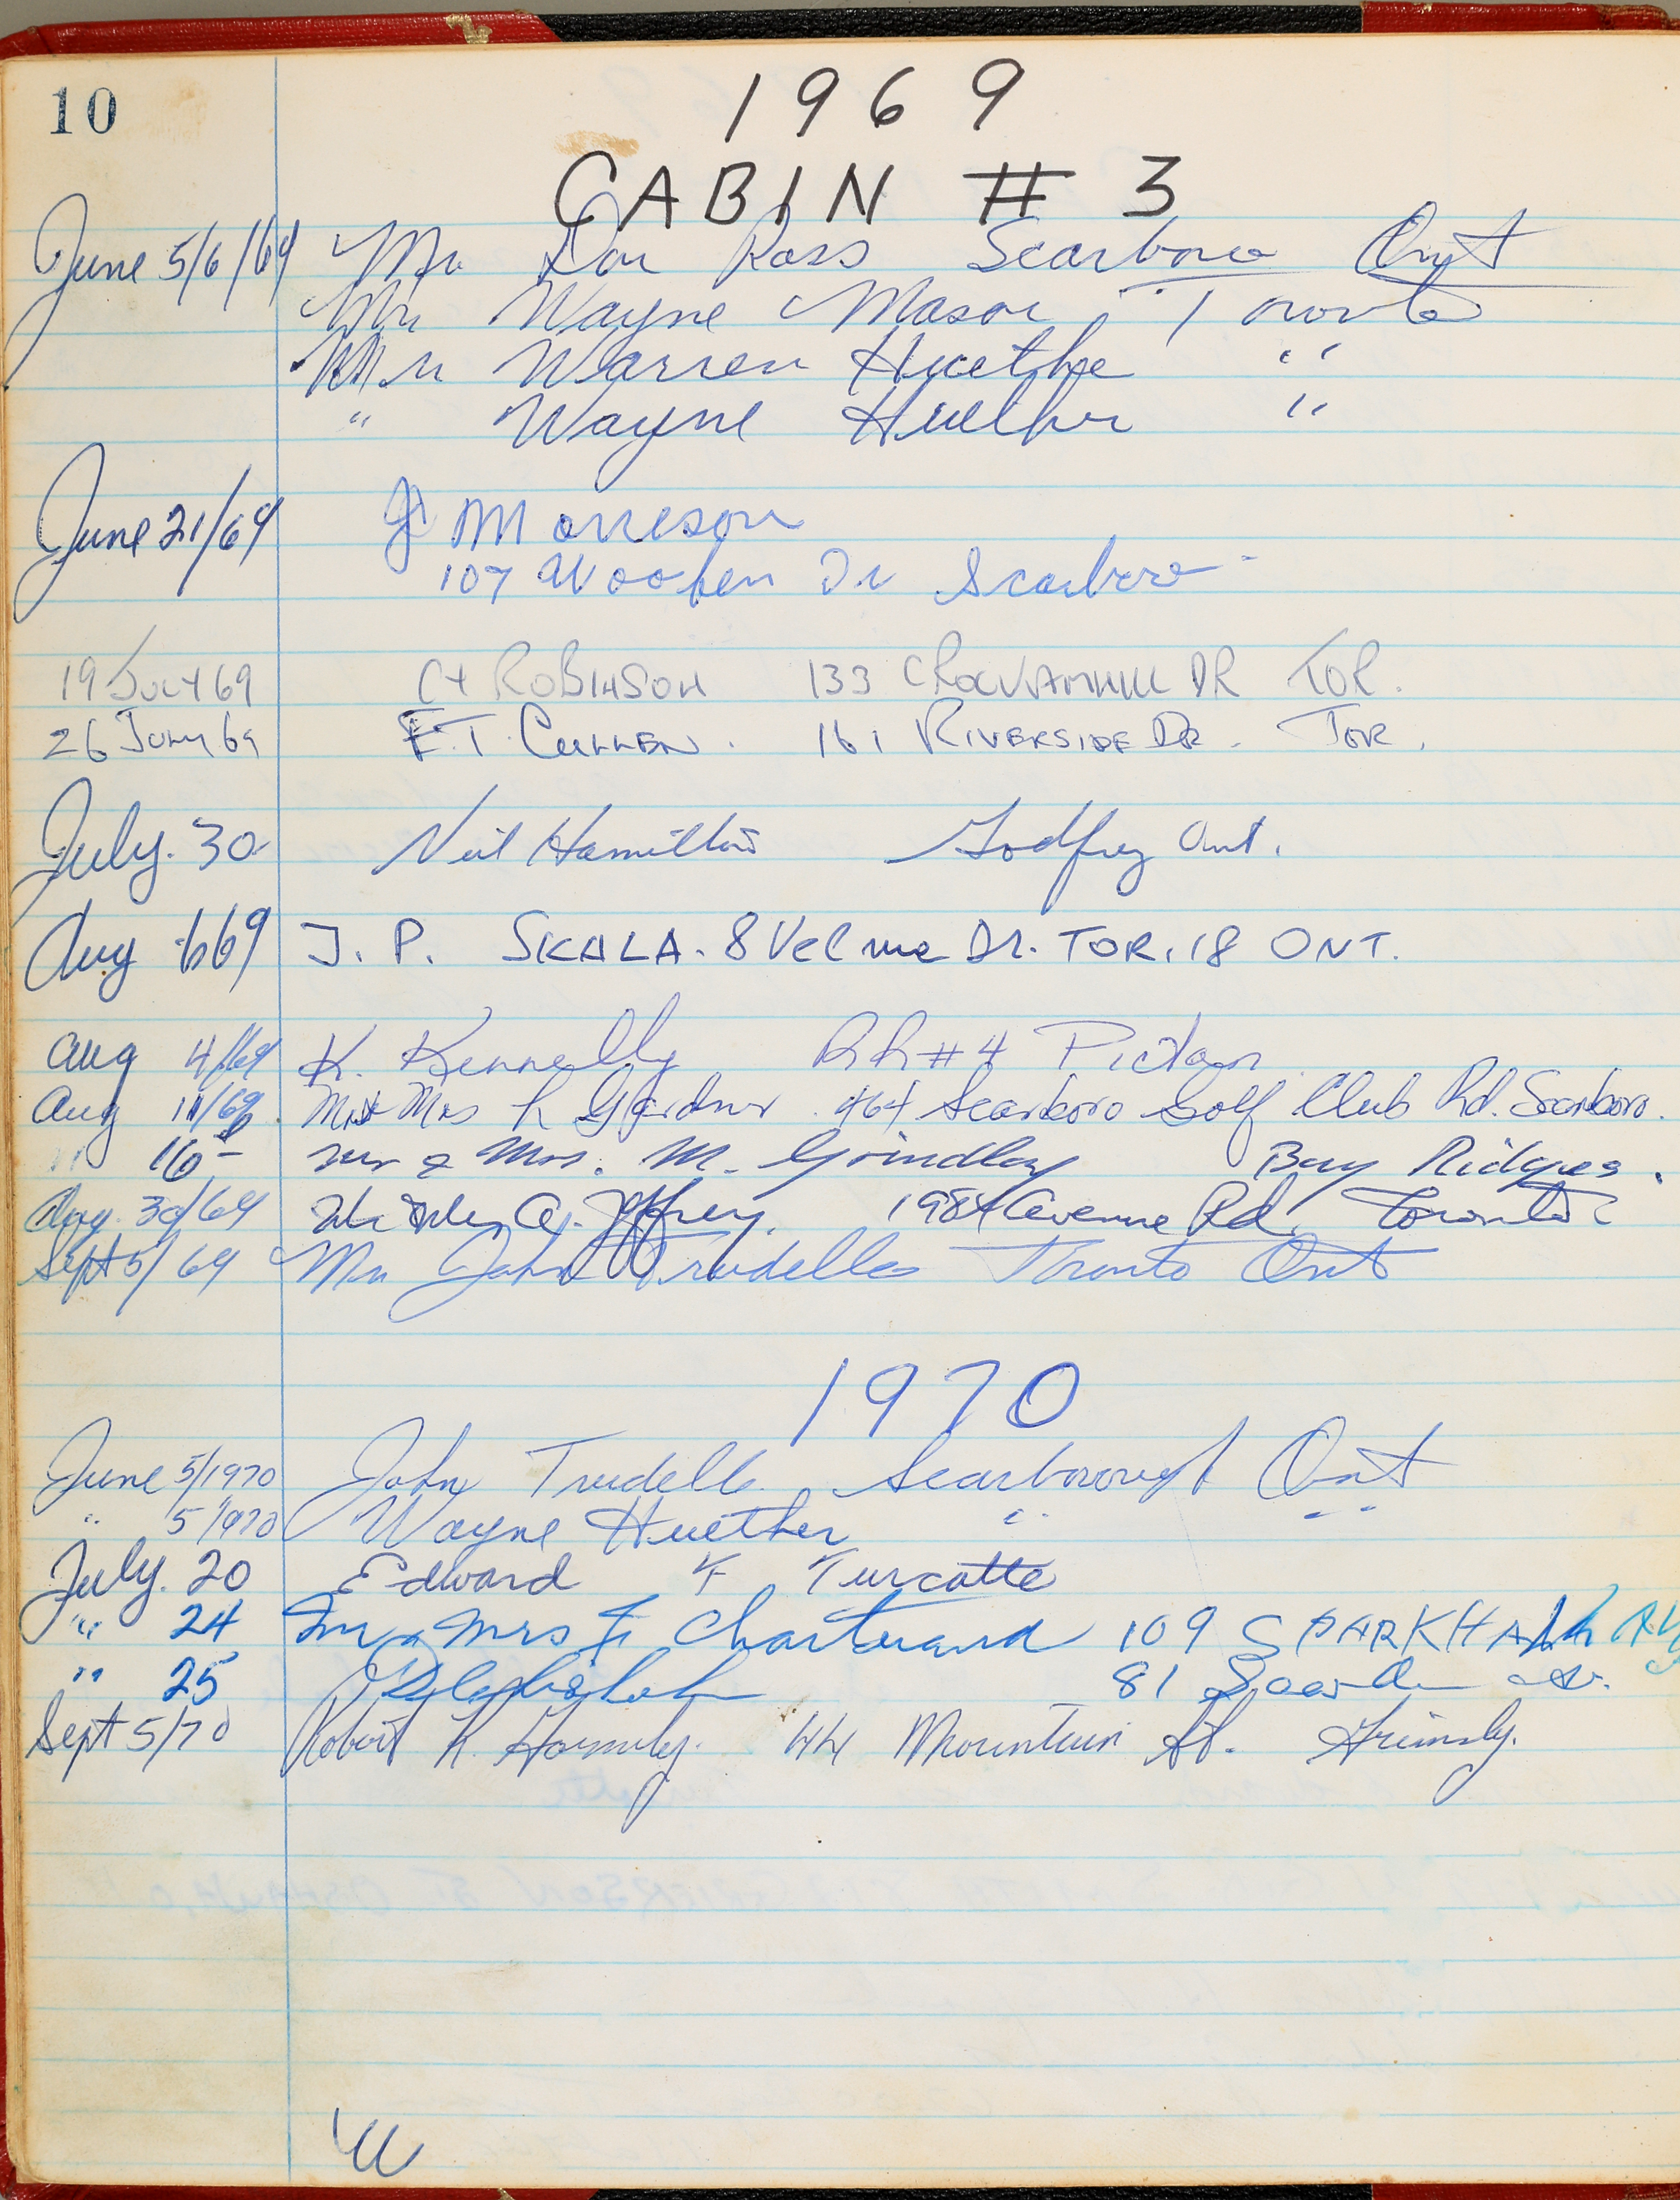 10
1969
CABIN # 3
June 5/6/69 Mr Don Ross Scarboro Ont
Mr Wayne Mason, Toronto
Mr Warren Huether "
" Wayne Huether "
June 21/69 J Morrison
107 Dr Scarboro
19 July 69 ROBINSON 133 DR TOR.
26 July 69 E.T. CULLEN. 161 RIVERSIDE DR. TOR.
July. 30 Neil Hamilton Godfrey Ont.
Aug 669 J. P. SKALA. 8 Velma Dr. TOR. 18 ONT.
Aug 4/69 K. Kennelly RR #4 Picton
Aug 11/69 Mr & Mrs R Gardner. 464 Scarboro Golf Club Rd. Scarboro.
" 16 - Mr & Mrs. M. Grindlay Bay Ridges.
Aug. 30/69 A. Jeffrey. 1984 Avenue Rd. Toronto
Sept 5/69 Mr John Trudelle Toronto Ont
1970
June 5/1970 John Trudelle Scarborough Ont
" 5/1970 Wayne Huether " "
July. 20 Edward F Turcotte
" 24 Mr & Mrs F Chartrand 109 SPARKHALL AV
" 25 81
Sept 5/70 Robert K. 44 Mountain St. Grimsby.